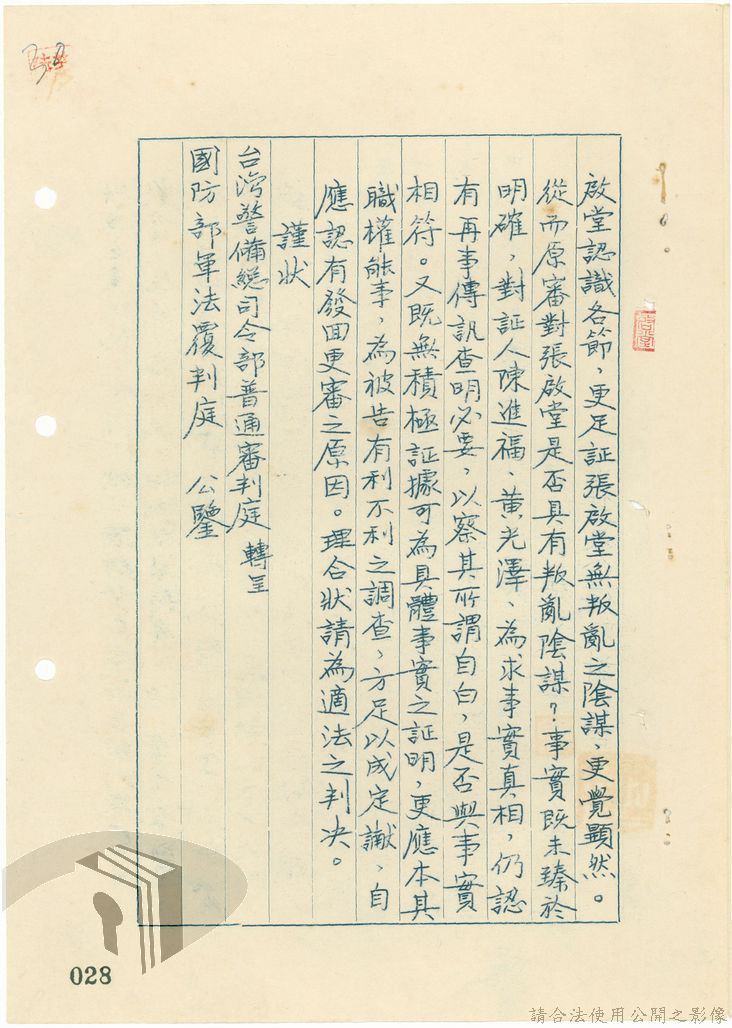 啟堂認識各節，更足証張啟堂無叛亂之陰謀，更覺顯然。
從而原審對張啟堂是否具有叛亂陰謀？事實既未臻於
明確，對証人陳進福、黃光澤、為求事實真相，仍認
有再事傳訊查明必要，以察其所謂自白，是否與事實
相符。又既無積極証據可為具體事實之証明，更應本其
職權能事，為被告有利不利之調查，方足以成定讞，自
應認有發回更審之原因。理合狀請為適法之判決。
謹狀
台灣警備總司令部普通審判庭 轉呈
國防部軍法覆判庭 公鑒
028
請合法使用公開之影像